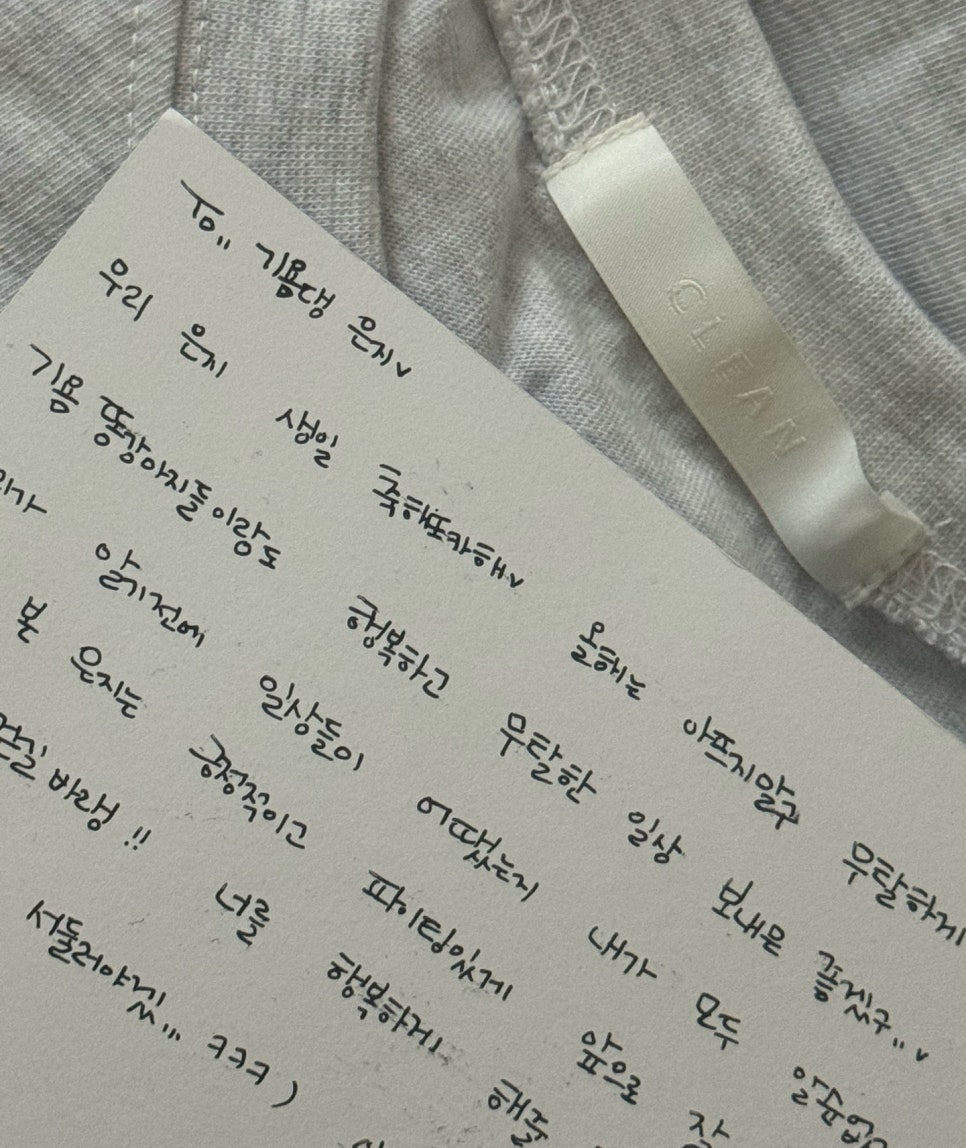 To,, 기욤댕 은지v
우리 은지 생일 올해는 아프지말구 무탈하게
기욤 똥강아지들이랑도 행복하고 무탈한 일상 보내믄 좋겠구,,v
알기전에 일상들이 어땠는지 내가 모두 알순없
본 은지는 긍정적이고 파이팅있게 앞으로 잘
바랭 !! 너를 행복하게 해줄
서둘러야겠,,, ㅋㅋㅋ )
CLEAN